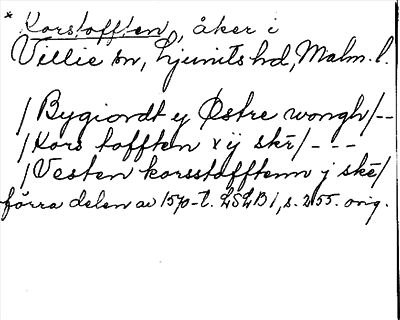 * Korstofften, åker i
Villie sn, Ljunits hd, Malm. l.
/Bygiordt ey Østre wongh/--
/Kors tofften x ÿ skē/---
/Vesten korsstofftenn j skē/
förra delen av 1570-t. LSLB1, s. 255. orig.